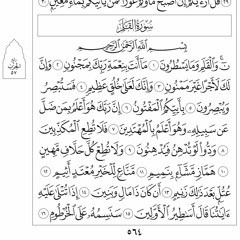 قُلْ أَرَءَيْتُمْ إِنْ أَصْبَحَ مَآؤُكُمْ غَوْرًا فَمَن يَأْتِيكُم بِمَآءٍ مَّعِينٍۭ ٣٠
سُورَةُ القَلَمِ
بِسْمِ ٱللَّهِ ٱلرَّحْمَٰنِ ٱلرَّحِيمِ
نٓ وَٱلْقَلَمِ وَمَا يَسْطُرُونَ ١ مَآ أَنتَ بِنِعْمَةِ رَبِّكَ بِمَجْنُونٍ ٢ وَإِنَّ
لَكَ لَأَجْرًا غَيْرَ مَمْنُونٍ ٣ وَإِنَّكَ لَعَلَىٰ خُلُقٍ عَظِيمٍ ٤ فَسَتُبْصِرُ
وَيُبْصِرُونَ ٥ بِأَييِّكُمُ ٱلْمَفْتُونُ ٦ إِنَّ رَبَّكَ هُوَ أَعْلَمُ بِمَن ضَلَّ
عَن سَبِيلِهِۦ وَهُوَ أَعْلَمُ بِٱلْمُهْتَدِينَ ٧ فَلَا تُطِعِ ٱلْمُكَذِّبِينَ
٨ وَدُّوا۟ لَوْ تُدْهِنُ فَيُدْهِنُونَ ٩ وَلَا تُطِعْ كُلَّ حَلَّافٍ مَّهِينٍ
١٠ هَمَّازٍ مَّشَّآءٍۭ بِنَمِيمٍ ١١ مَّنَّاعٍ لِّلْخَيْرِ مُعْتَدٍ أَثِيمٍ ١٢
عُتُلٍّۭ بَعْدَ ذَٰلِكَ زَنِيمٍ ١٣ أَن كَانَ ذَا مَالٍ وَبَنِينَ ١٤ إِذَا تُتْلَىٰ عَلَيْهِ
ءَايَٰتُنَا قَالَ أَسَٰطِيرُ ٱلْأَوَّلِينَ ١٥ سَنَسِمُهُۥ عَلَى ٱلْخُرْطُومِ ١٦
الحزب
٥٧
٥٦٤